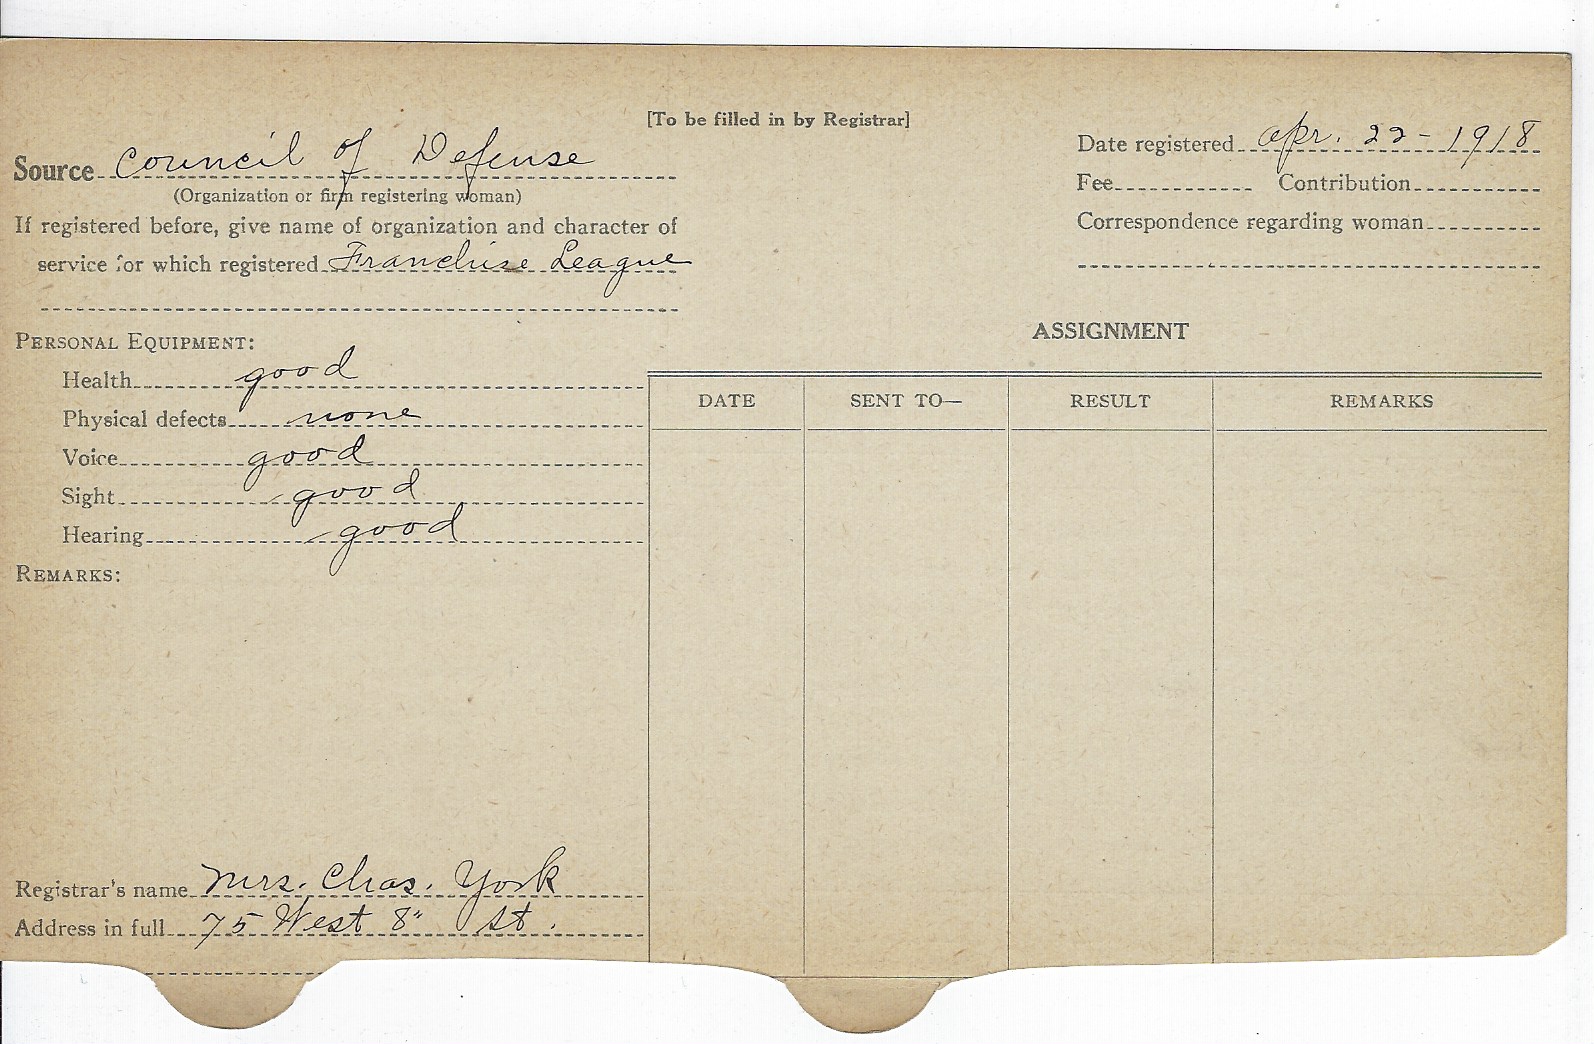 [To be filled in by Registrar]
Source Council of Defense
(Organization or firm registering woman)
If registered before, give name of organization and character of
service for which registered Franchise League
Date registered Apr. 22-1918
Fee Contribution
Correspondence regarding woman
PERSONAL EQUIPMENT:
Health good
Physical defects none
Voice good
Sight good
Hearing good
REMARKS:
Registrar's name Mrs. Chas. York
Address in full 75 West 8" St.
ASSIGNMENT
DATE SENT TO— RESULT REMARKS